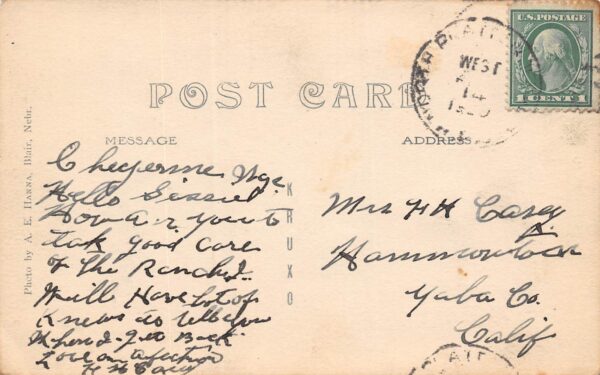 POST CARD
MESSAGE
ADDRESS
U.S. POSTAGE
1 CENT 1
WEST
14
Photo by A. E. Hanna, Blair, Nebr.
KRUXO
Cheyenne Wyo
Hello Sissie
How are you to
tak good care
of the Ranch I
Will Have lot of
news to tell you
When I get Back
Love an afection
H H Casey
Mrs H H Casey
Hammonton
Yuba Co.
Calif